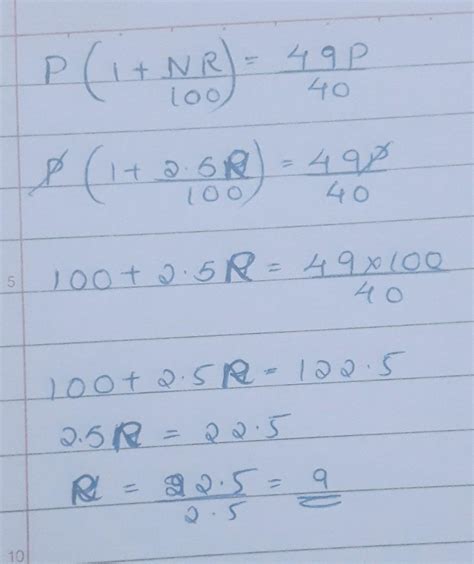 P(1 + NR/100) = 49P/40
P(1 + 2.5R/100) = 49P/40
5 100 + 2.5R = 49×100/40
100 + 2.5R = 122.5
2.5R = 22.5
R = 22.5/2.5 = 9
10